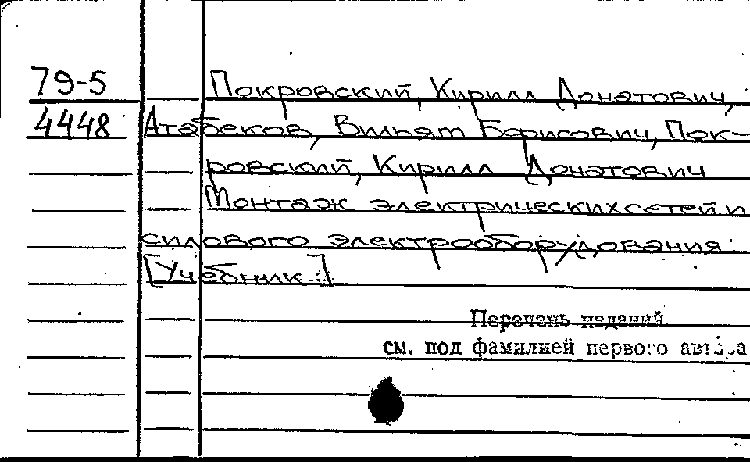 79-5 Покровский, Кирилл Донатович,
4448 Атабеков, Вильям Борисович, Пок-
ровский, Кирилл Донатович
Монтаж электрических сетей и
силового электрооборудования:
[Учебник.]
Перечень изданий
см. под фамилией первого автора